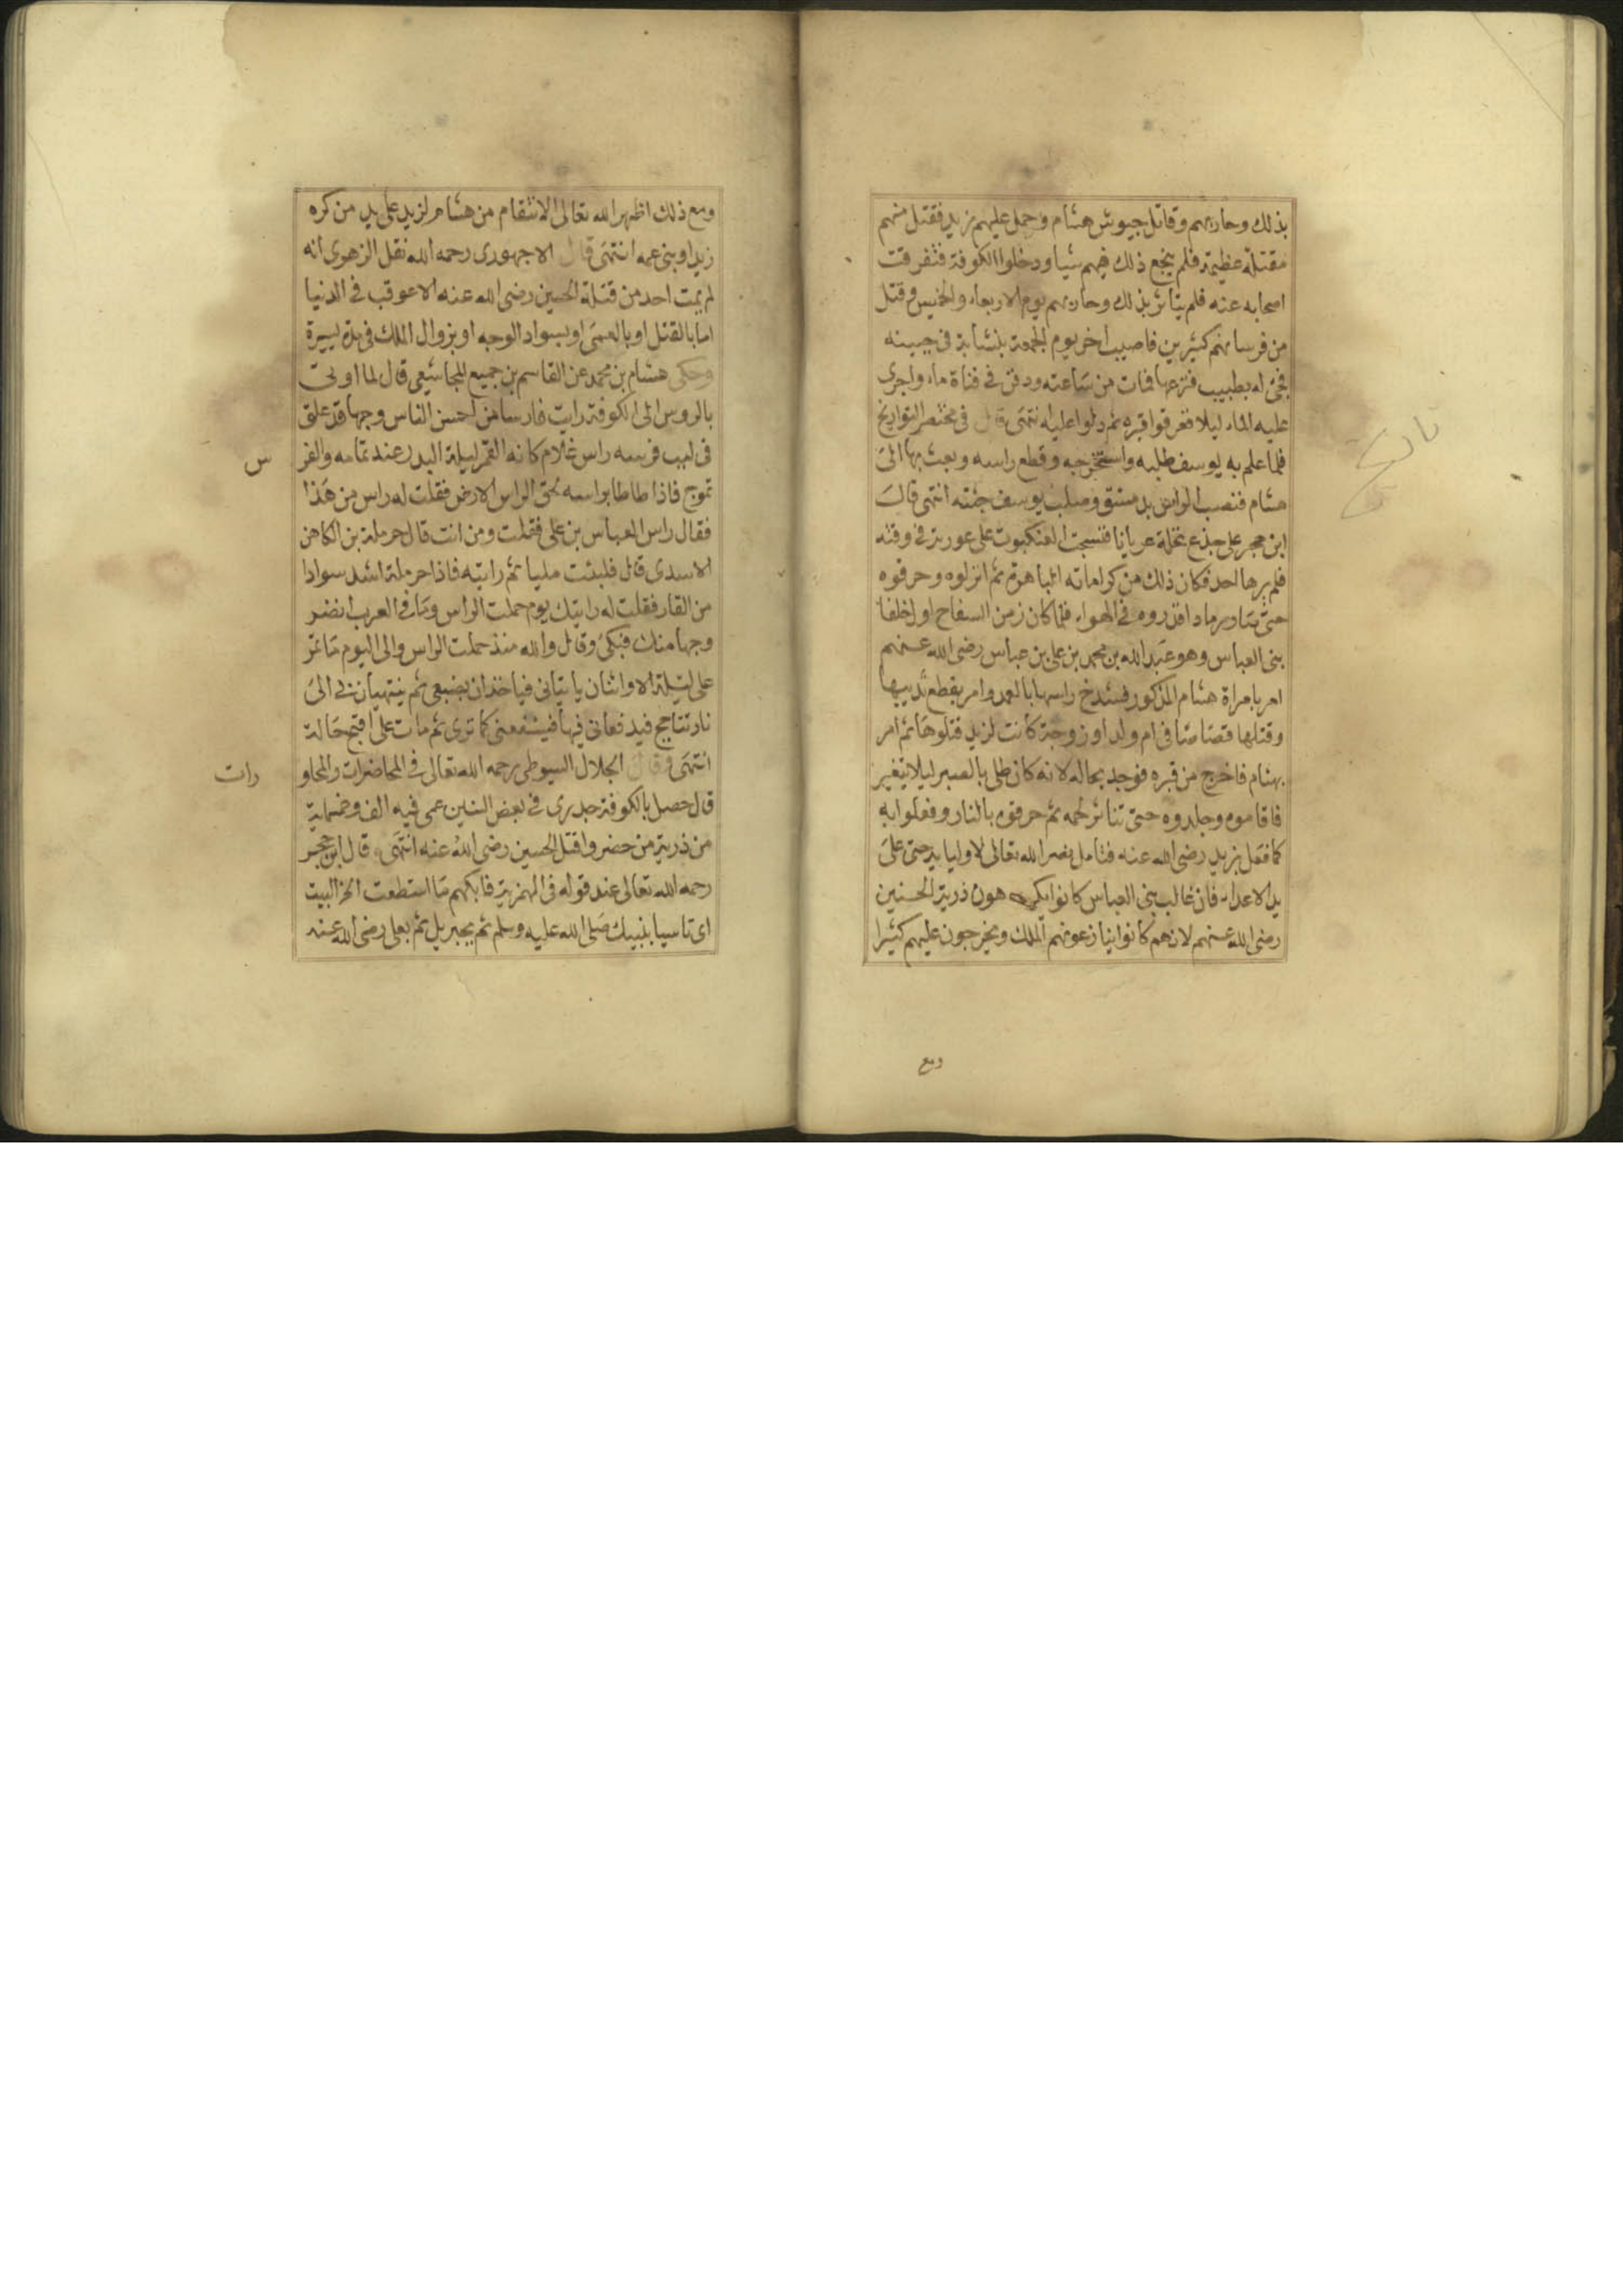 بذلك وحاربهم وقاتل جيوش هشام وحمل عليهم زيد فقتل منهم
مقتلة عظيمة فلم ينجع ذلك فيهم شيا ودخلوا الكوفة فتفرقت
اصحابه عنه فلم يتاثر بذلك وحاربهم يوم الاربعاء والخميس وقتل
من فرسانهم كثيرين فاصيب اخر يوم الجمعة بنشابة في جبينه
فجئ له بطبيب فنزعها فمات من ساعته ودفن في قناة ماء واجرى
عليه الماء ليلا فتفرقوا قبره ثم دلوا عليه انتهى قال في مختصر التواريخ
فلما علم به يوسف طلبه واستخرجه وقطع راسه وبعث بها الى
هشام فنصب الراس بدمشق وصلب يوسف جثته انتهى قال
ابن حجر على جذع نخلة عريانا فنسجت العنكبوت على عورته في وقته
فلم يرها احد فكان ذلك من كراماته الباهرة ثم انزلوه وحرقوه
حتى صار رمادا فذروه في الهواء فلما كان زمن السفاح اول خلفا
بني العباس وهو عبد الله بن محمد بن علي بن عباس رضى الله عنهم
امر بامراة هشام المذكور فشدخ راسها بالعمد وامر بقطع ثدييها
وقتلها قصاصا في ام ولد او زوجة كانت لزيد قتلوها ثم امر
بهشام فاخرج من قبره فوجد بحاله لانه كان طلي بالصبر ليلا يتغير
فاقاموه وجلدوه حتى تناثر لحمه ثم حرقوه بالنار وفعلوا به
كما فعل بزيد رضى الله عنه فتامل نصر الله تعالى لاوليايه حتى على
يد الاعداء فان غالب بني العباس كانوا يكرهون ذرية الحسنين
رضى الله عنهم لانهم كانوا ينازعونهم الملك ويخرجون عليهم كثيرا
ومع
تاريخ
ومع ذلك اظهر الله تعالى الانتقام من هشام لزيد على يد من كره
زيدا وبني عمه انتهى قال الاجهوري رحمه الله نقل الزهري انه
لم يمت احد من قتلة الحسين رضى الله عنه الا عوقب في الدنيا
اما بالقتل او بالعمى او بسواد الوجه او بزوال الملك في مدة يسيرة
وحكى هشام بن محمد عن القاسم بن جميع المجاشعي قال لما اوتى
بالروس الى الكوفة رايت فارسا من احسن الناس وجها قد علق
في لبب فرسه راس غلام كانه القمر ليلة البدر عند تمامه والفر
س
تموج فاذا طاطا براسه لحق الراس الارض فقلت له راس من هذا
فقال راس العباس بن علي فقلت ومن انت قال حرملة بن الكاهن
الاسدي قال فلبثت مليا ثم رايته فاذا حرملة اشد سوادا
من القار فقلت له رايتك يوم حملت الراس وما في العرب انضر
وجها منك فبكى وقال والله منذ حملت الراس والى اليوم ما تمر
على ليلة الا واثنان ياتياني فياخذان بضبعي ثم ينتهيان بي الى
نار تتاجج فيدفعاني فيها فيسفعني كما ترى ثم مات على اقبح حالة
انتهى وقال الجلال السيوطي رحمه الله تعالى في المحاضرات والمحاو
رات
قال حصل بالكوفة جدري في بعض السنين عمي فيه الف وخمسماية
من ذرية من حضروا قتل الحسين رضى الله عنه انتهى قال ابن حجر
رحمه الله تعالى عند قوله في الهمزية فابكهم ما استطعت الخ البيت
اي تاسيا بنبيك صلى الله عليه وسلم ثم بجبريل ثم بعلي رضى الله عنه